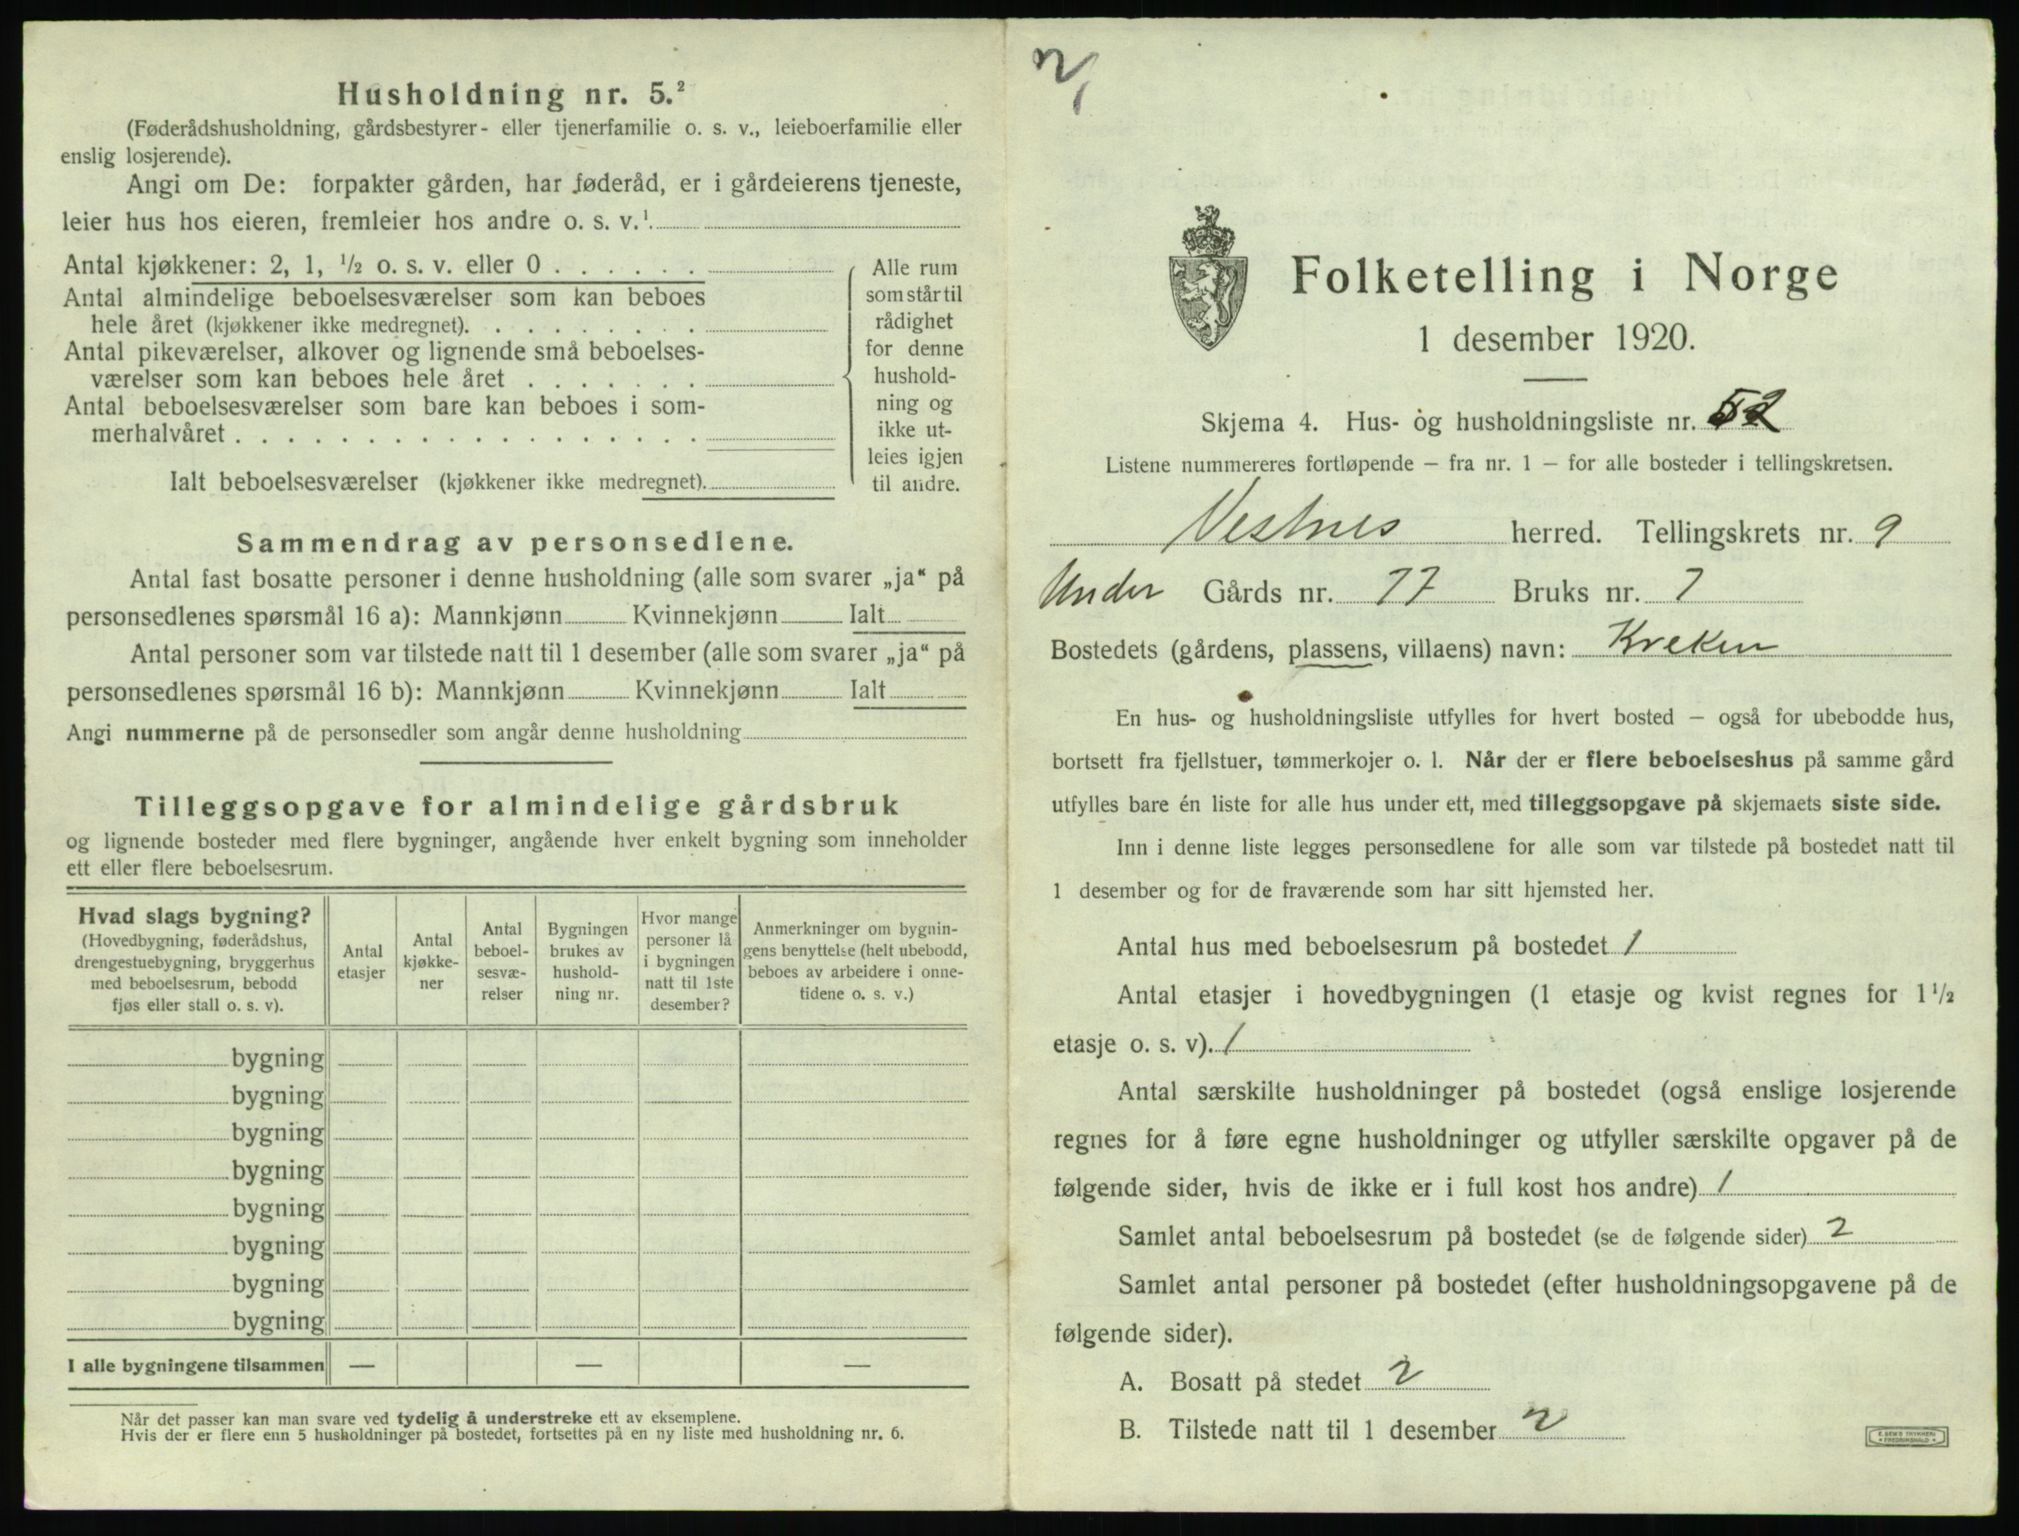 Husholdning nr. 5.²
(Føderådshusholdning, gårdsbestyrer- eller tjenerfamilie o. s. v., leieboerfamilie eller
enslig losjerende).
Angi om De: forpakter gården, har føderåd, er i gårdeierens tjeneste,
leier hus hos eieren, fremleier hos andre o. s. v.¹
Antal kjøkkener: 2, 1, ½ o. s. v. eller 0 . . . . . .
Antal almindelige beboelsesværelser som kan beboes
hele året (kjøkkener ikke medregnet). . . . . . . . .
Antal pikeværelser, alkover og lignende små beboelses-
værelser som kan beboes hele året . . . . . . .
Antal beboelsesværelser som bare kan beboes i som-
merhalvåret . . . . . . . . . . . . . . . . . .
Ialt beboelsesværelser (kjøkkener ikke medregnet).
Alle rum
som står til
rådighet
for denne
hushold-
ning og
ikke ut-
leies igjen
til andre.
Sammendrag av personsedlene.
Antal fast bosatte personer i denne husholdning (alle som svarer „ja“ på
personsedlenes spørsmål 16 a): Mannkjønn Kvinnekjønn Ialt
Antal personer som var tilstede natt til 1 desember (alle som svarer „ja“ på
personsedlenes spørsmål 16 b): Mannkjønn Kvinnekjønn Ialt
Angi nummerne på de personsedler som angår denne husholdning
Tilleggsopgave for almindelige gårdsbruk
og lignende bosteder med flere bygninger, angående hver enkelt bygning som inneholder
ett eller flere beboelsesrum.
Hvad slags bygning?
(Hovedbygning, føderådshus,
drengestuebygning, bryggerhus
med beboelsesrum, bebodd
fjøs eller stall o. s. v).
Antal
etasjer
Antal
kjøkke-
ner
Antal
beboel-
sesvæ-
relser
Bygningen
brukes av
hushold-
ning nr.
Hvor mange
personer lå
i bygningen
natt til 1ste
desember?
Anmerkninger om bygnin-
gens benyttelse (helt ubebodd,
beboes av arbeidere i onne-
tidene o. s. v.)
bygning
bygning
bygning
bygning
bygning
bygning
bygning
bygning
I alle bygningene tilsammen — — —
Når det passer kan man svare ved tydelig å understreke ett av eksemplene.
Hvis der er flere enn 5 husholdninger på bostedet, fortsettes på en ny liste med husholdning nr. 6.
Folketelling i Norge
1 desember 1920.
Skjema 4. Hus- og husholdningsliste nr. 52
Listene nummereres fortløpende – fra nr. 1 – for alle bosteder i tellingskretsen.
Vestnes herred. Tellingskrets nr. 9
Under Gårds nr. 77 Bruks nr. 7
Bostedets (gårdens, plassens, villaens) navn: Kreken
En hus- og husholdningsliste utfylles for hvert bosted – også for ubebodde hus,
bortsett fra fjellstuer, tømmerkojer o. l. Når der er flere beboelseshus på samme gård
utfylles bare én liste for alle hus under ett, med tilleggsopgave på skjemaets siste side.
Inn i denne liste legges personsedlene for alle som var tilstede på bostedet natt til
1 desember og for de fraværende som har sitt hjemsted her.
Antal hus med beboelsesrum på bostedet 1
Antal etasjer i hovedbygningen (1 etasje og kvist regnes for 1½
etasje o. s. v). 1
Antal særskilte husholdninger på bostedet (også enslige losjerende
regnes for å føre egne husholdninger og utfyller særskilte opgaver på de
følgende sider, hvis de ikke er i full kost hos andre) 1
Samlet antal beboelsesrum på bostedet (se de følgende sider) 2
Samlet antal personer på bostedet (efter husholdningsopgavene på de
følgende sider).
A. Bosatt på stedet 2
B. Tilstede natt til 1 desember 2